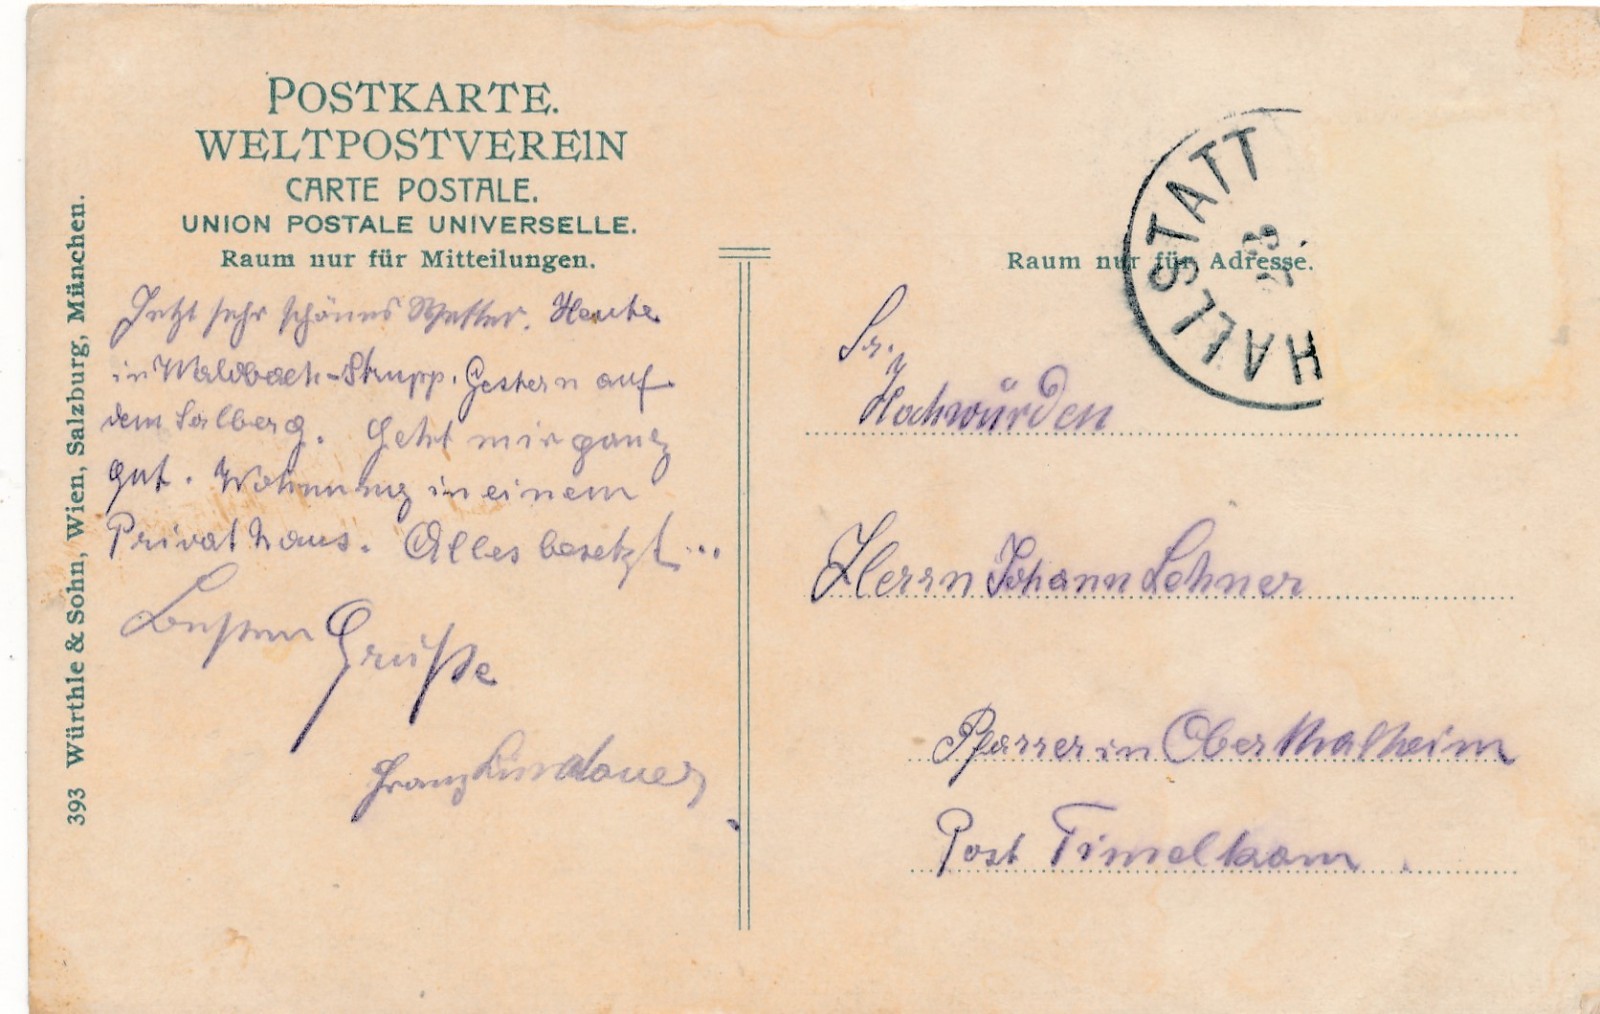 POSTKARTE.
WELTPOSTVEREIN
CARTE POSTALE.
UNION POSTALE UNIVERSELLE.
Raum nur für Mitteilungen.
Jetzt sehr schönes Wetter. Heute
in Waldbach-Strupp. Gestern auf
dem Salberg. Geht mir ganz
gut. Wohnung in einem
Privathaus. Alles besetzt...
Besten Grüße
Franz Lindauer
393 Würthle & Sohn, Wien, Salzburg, München.
HALLSTATT
23
Raum nur für Adresse.
Sr.
Hochwürden
Herrn Johann Lohner
Pfarrer in Oberthalheim
Post Timelkam.